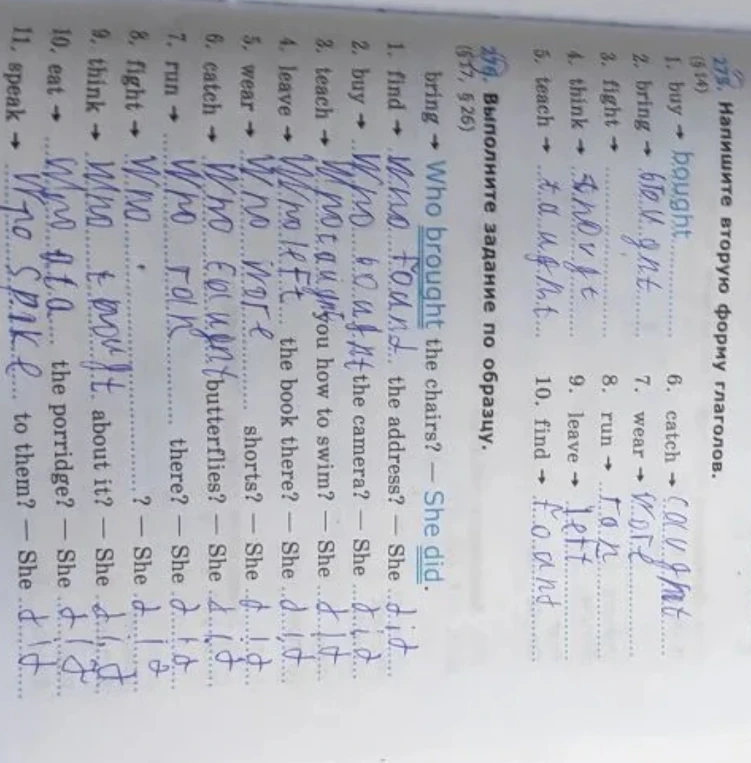 275. Напишите вторую форму глаголов.
(§ 14)
1. buy → bought 6. catch → caught
2. bring → brought 7. wear → wore
3. fight → 8. run → ran
4. think → thougt 9. leave → left
5. teach → taught 10. find → found
276. Выполните задание по образцу.
(§ 17, § 26)
bring → Who brought the chairs? — She did.
1. find → Who found the address? — She did
2. buy → Who bought the camera? — She did
3. teach → Who caught you how to swim? — She did
4. leave → Who left the book there? — She did
5. wear → Who wore shorts? — She did
6. catch → Who caught butterflies? — She did
7. run → Who ran there? — She did
8. fight → Who ? — She did
9. think → Who thougt about it? — She did
10. eat → Who ata the porridge? — She did
11. speak → Who spike to them? — She did